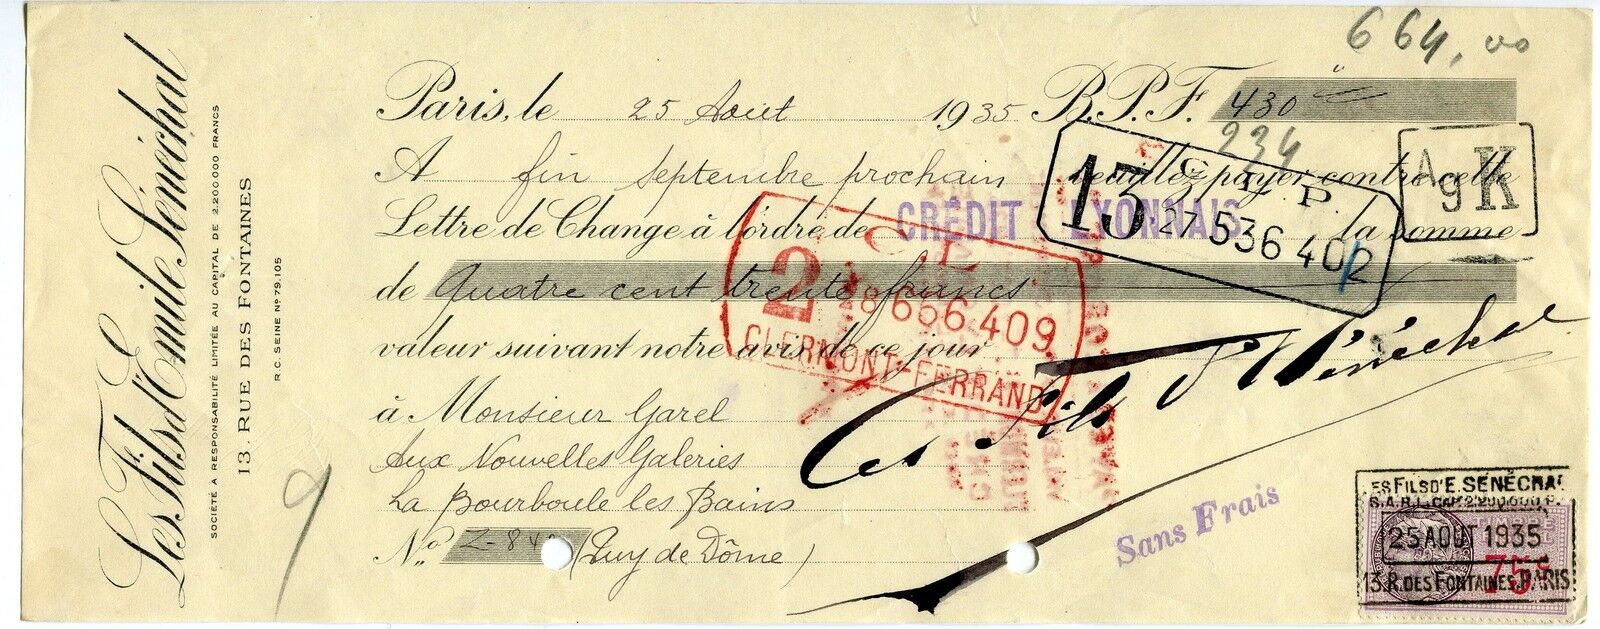 Les Fils d'Emile Sénéchal
SOCIÉTÉ A RESPONSABILITÉ LIMITÉE AU CAPITAL DE 2.200.000 FRANCS
13, RUE DES FONTAINES
R.C. SEINE Nº 79.105
9
664,00
Paris, le 25 Août 1935 B.P.F. 430
234
A fin septembre prochain veuillez payer contre cette
Lettre de Change à l'ordre de CRÉDIT LYONNAIS la somme
de Quatre cent trente francs
valeur suivant notre avis de ce jour
à Monsieur Garel
Aux Nouvelles Galeries
La Bourboule les Bains
Nº Z-84 (Puy de Dôme)
13 C.L.P.
27.536 402
Ag K
C L
2 8656 409
CLERMONT-FERRAND
Les Fils d'E Sénéchal
Sans Frais
LES FILS D'E. SÉNÉCHAL
S.A.R.L. CAP. 2.200.000 F.
25 AOUT 1935
75c
13 R. DES FONTAINES. PARIS